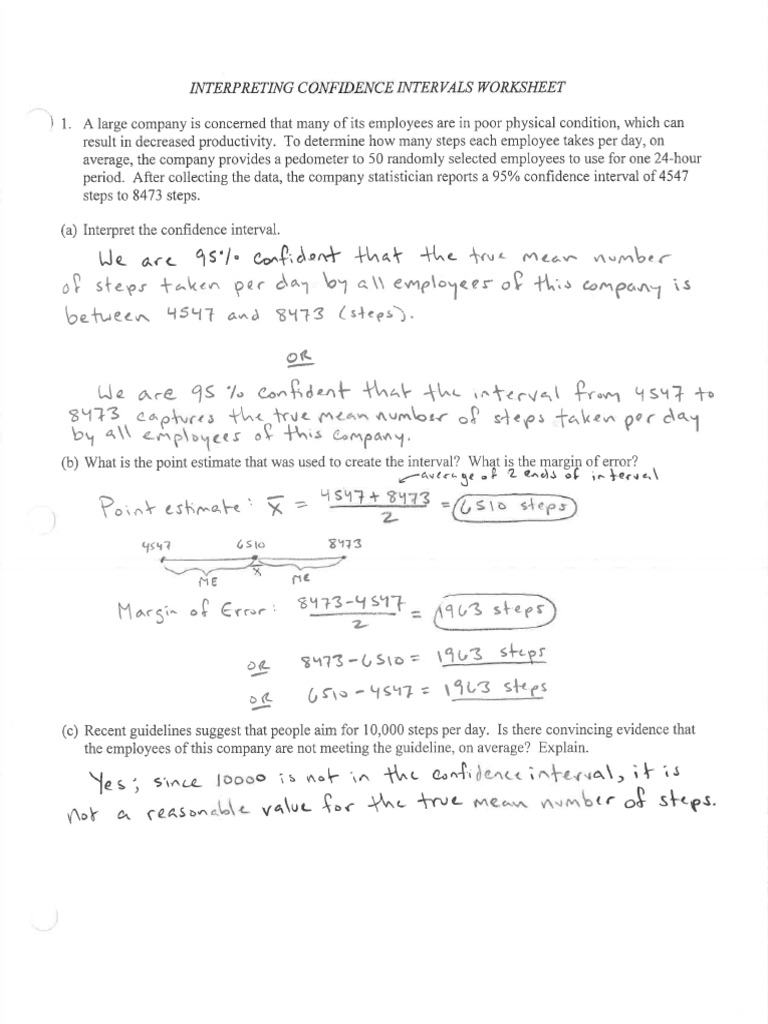 INTERPRETING CONFIDENCE INTERVALS WORKSHEET
1. A large company is concerned that many of its employees are in poor physical condition, which can
result in decreased productivity. To determine how many steps each employee takes per day, on
average, the company provides a pedometer to 50 randomly selected employees to use for one 24-hour
period. After collecting the data, the company statistician reports a 95% confidence interval of 4547
steps to 8473 steps.
(a) Interpret the confidence interval.
We are 95% confident that the true mean number
of steps taken per day by all employees of this company is
between 4547 and 8473 (steps).
OR
We are 95% confident that the interval from 4547 to
8473 captures the true mean number of steps taken per day
by all employees of this company.
(b) What is the point estimate that was used to create the interval? What is the margin of error?
average of 2 ends of interval
Point estimate: x̄ = (4547 + 8473)/2 = 6510 steps
4547 6510 8473
ME x̄ ME
Margin of Error: (8473-4547)/2 = 1963 steps
OR 8473-6510 = 1963 steps
OR 6510-4547 = 1963 steps
(c) Recent guidelines suggest that people aim for 10,000 steps per day. Is there convincing evidence that
the employees of this company are not meeting the guideline, on average? Explain.
Yes; since 10000 is not in the confidence interval, it is
not a reasonable value for the true mean number of steps.